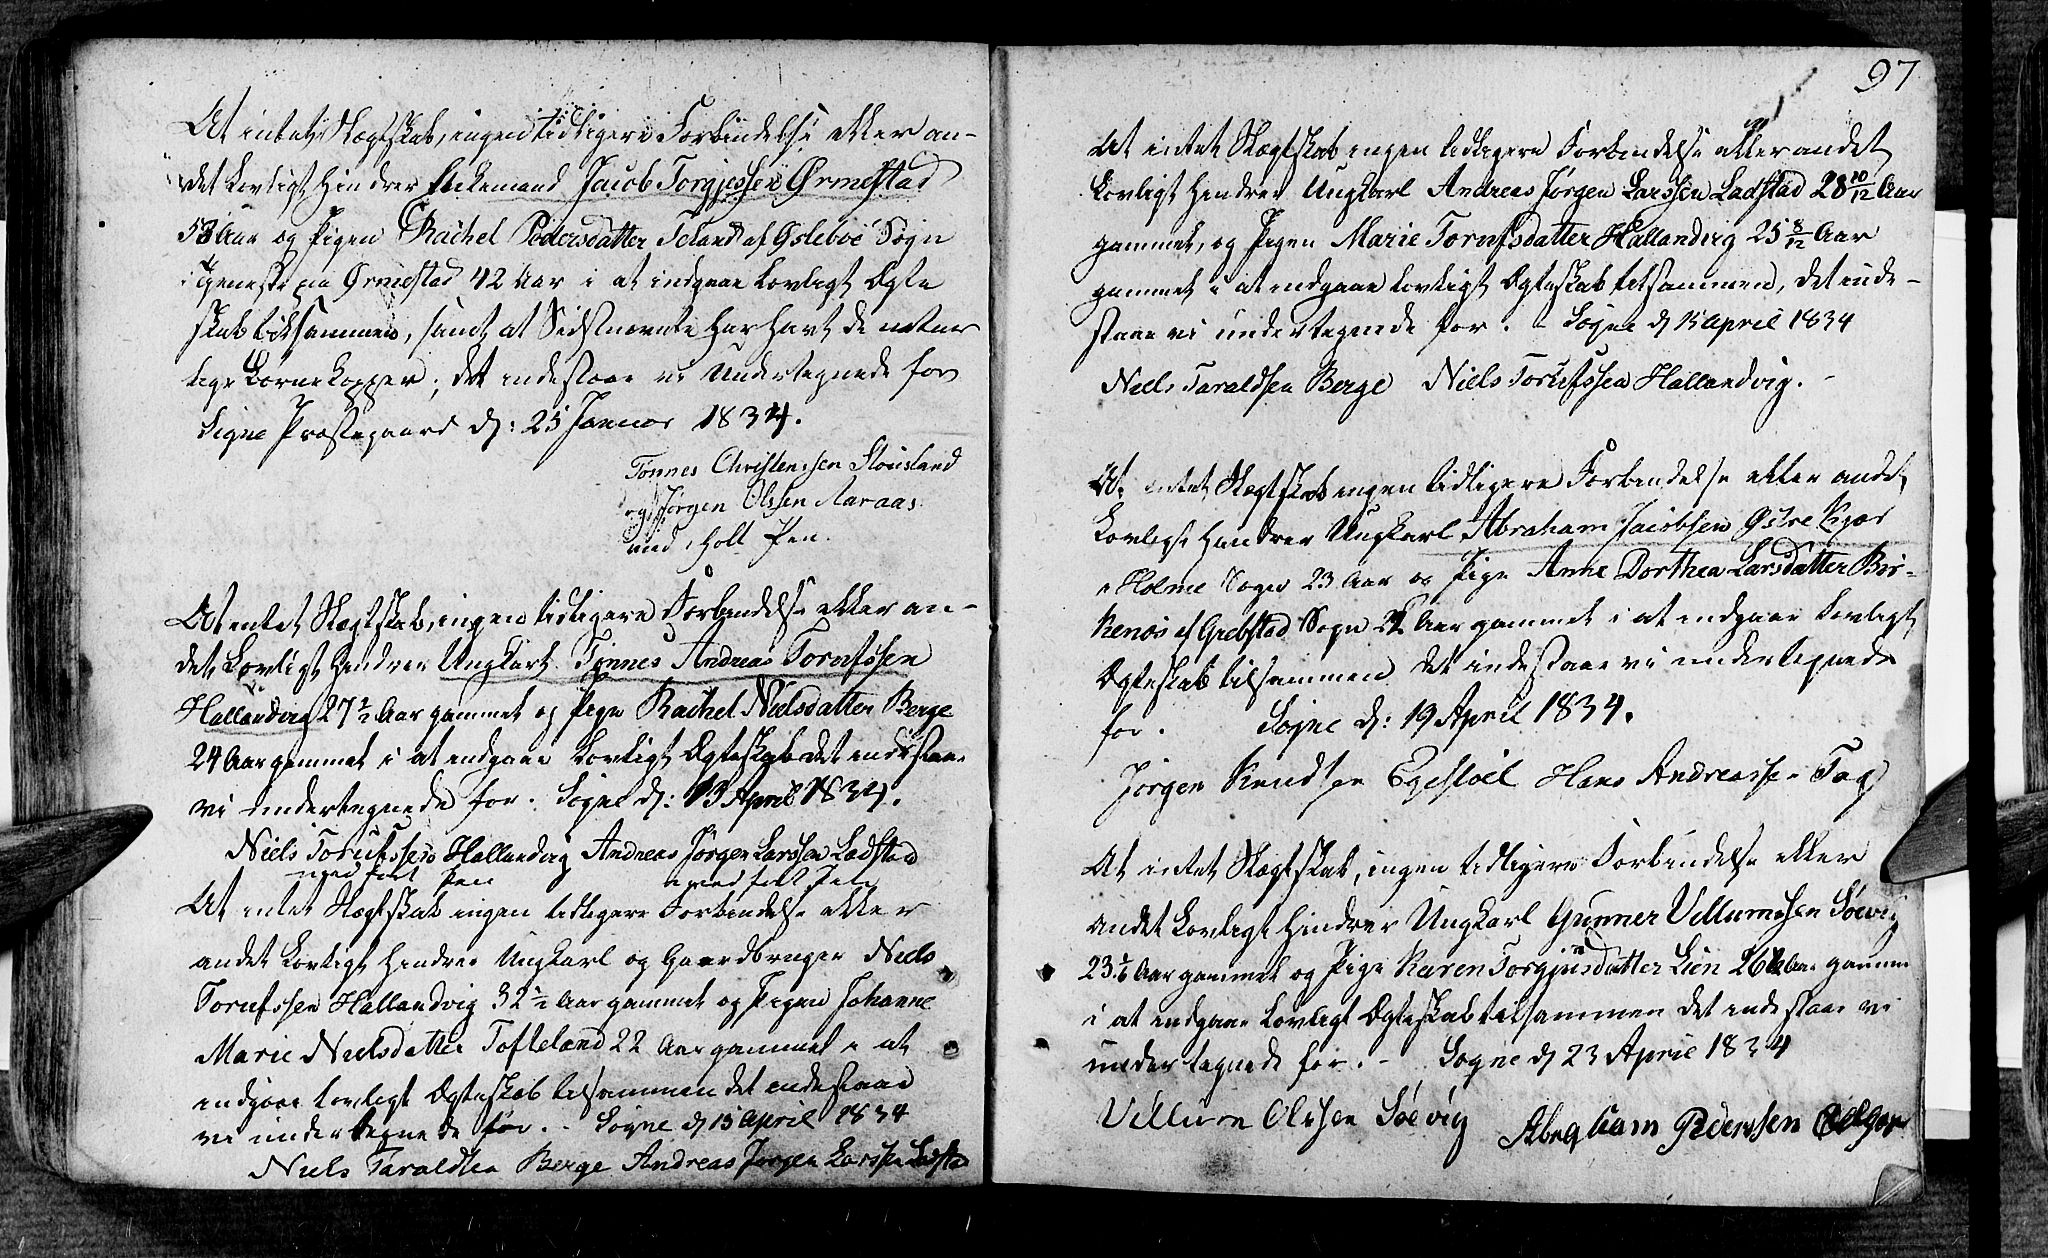 At intet Slægtskab, ingen tidligere Forbindelse eller an-
det Lovligt Hindrer Enkemand Jacob Torgjessen Ørmestad
58 Aar og Pigen Rachel Pedersdatter Teland af Øslebøe Sogn
i Tjeneste paa Ørmestad 42 Aar i at indgaae Lovligt Ægte
skab tilsammen, samt at Sidstnævnte har havt de natur
lige Børnekopper; det indestaae vi Undertegnede for
Søgne Præstegaard d: 25 Januar 1834.
Tønnes Christenssen Stousland
og Jørgen Olssen Aaraas
med holt Pen.
At intet Slægtskab, ingen tidligere Forbindelse eller an-
det Lovligt hindrer Ungkarl Tønnes Andreas Torufssen
Hallandvig 27 1/2 Aar gammel og Pige Rachel Nielsdatter Berge
24 Aar gammel i at indgaae Lovligt Ægteskab det indestaae
vi undertegnede for. Søgne d: 13 April 1834.
Niels Torufssen Hallandvig Andreas Jørgen Larssen Ladstad
med holt Pen med holt Pen
At intet Slægtskab ingen tidligere Forbindelse eller
andet Lovligt Hindrer Ungkarl og Gaardbruger Niels
Torufssen Hallandvig 32 1/2 Aar gammel og Pigen Johanne
Marie Nielsdatter Tofteland 22 Aar gammel i at
indgaae Lovligt Ægteskab tilsammen det indestaae
vi undertegnede for. - Søgne d 15 April 1834
Niels Taraldsen Berge Andreas Jørgen Larssen Ladsta
97
At intet Slægtskab ingen tidligere Forbindelse eller andet
Lovligt Hindrer Ungkarl Andreas Jørgen Larssen Ladstad 28 10/12 Aar
gammel, og Pigen Marie Torufsdatter Hallandvig 25 8/12 Aar
gammel i at indgaae Lovligt Ægteskab tilsammen, det inde-
staae vi undertegnede for. - Søgne d 15 April 1834
Niels Taraldsen Berge Niels Torufssen Hallandvig. -
At intet Slægtskab ingen tidligere Forbindelse eller andet
Lovligt Hindrer Ungkarl Abraham Jacobsen Østre Kjær
i Holme Sogn 23 Aar og Pige Anne Dorthea Larsdatter Bir-
kenos af Grebstad Sogn Aar gammel i at indgaae Lovligt
Ægteskab tilsammen det indestaae vi undertegnede
for. Søgne d: 19 April 1834.
Jørgen Knudsen Egestøel Hans Andreassen Tag
At intet Slægtskab, ingen tidligere Forbindelse eller
andet Lovligt Hindrer Ungkarl Gunner Villumssen Søevig
23 1/2 Aar gammel og Pige Karen Torgjusdatter Lien 26 Aar gamme
i at indgaae Lovligt Ægteskab tilsammen det indestaae vi
undertegnede for. - Søgne d 23 April 1834
Villum Olssen Søevig Abraham Pederssen